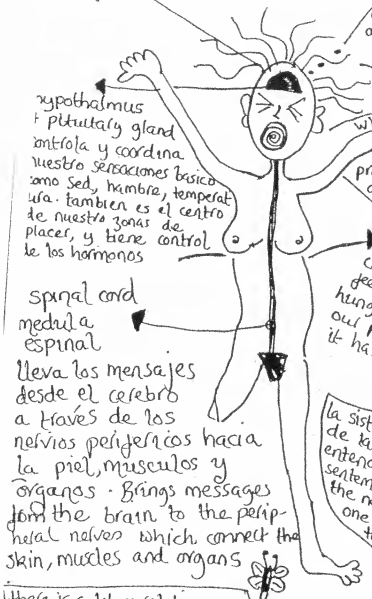 hypothalmus
+ pituitary gland
controla y coordina
nuestro sensaciones basico
como sed, hambre, temperat
ura. tambien es el centro
de nuestro zonas de
placer, y tiene control
de los hormonos
spinal cord
medula
espinal
lleva los mensajes
desde el cerebro
a través de los
nervios perifericos hacia
la piel, musculos y
órganos. Brings messages
from the brain to the perip-
heral nerves which connect the
skin, muscles and organs
there is a
w
pr
fee
hung
our
it ha
la sist
de la
entend
sentem
the n
one